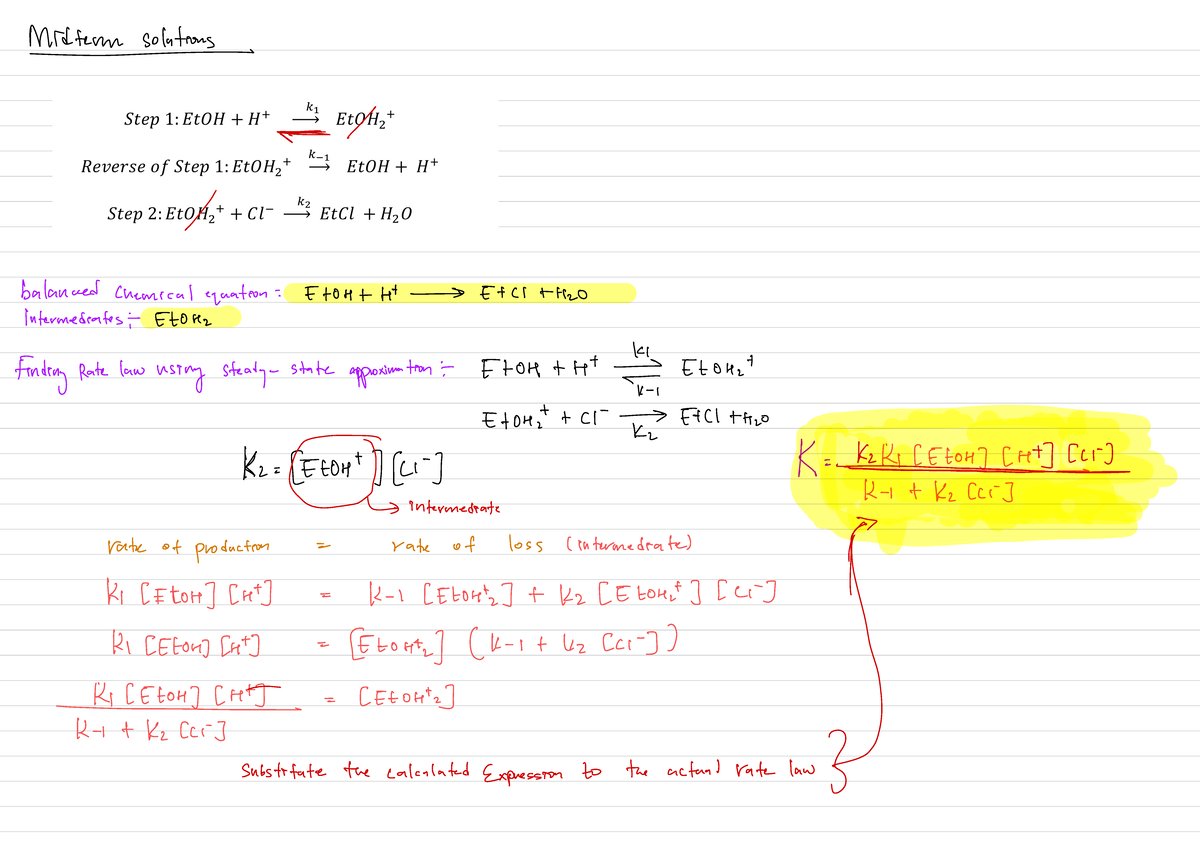 Midterm solutions
Step 1: EtOH + H⁺ →(k₁) EtOH₂⁺
Reverse of Step 1: EtOH₂⁺ →(k₋₁) EtOH + H⁺
Step 2: EtOH₂⁺ + Cl⁻ →(k₂) EtCl + H₂O
balanced chemical equation :- EtOH + H⁺ → EtCl + H₂O
Intermediates :- EtOH₂
Finding Rate law using steady-state approximation :- EtOH + H⁺ ⇌ EtOH₂⁺ k₁ k-1
EtOH₂⁺ + Cl⁻ → EtCl + H₂O K₂
K₂ = [EtOH⁺] [Cl⁻]
→ intermediate
K = K₂K₁ [EtOH] [H⁺] [Cl⁻] / k-1 + K₂ [Cl⁻]
rate of production = rate of loss (intermediate)
K₁ [EtOH] [H⁺] = k-1 [EtOH⁺₂] + K₂ [EtOH₂⁺] [Cl⁻]
K₁ [EtOH] [H⁺] = [EtOH⁺₂] (k-1 + K₂ [Cl⁻])
K₁ [EtOH] [H⁺] / k-1 + K₂ [Cl⁻] = [EtOH⁺₂]
Substitute the calculated Expression to the actual rate law